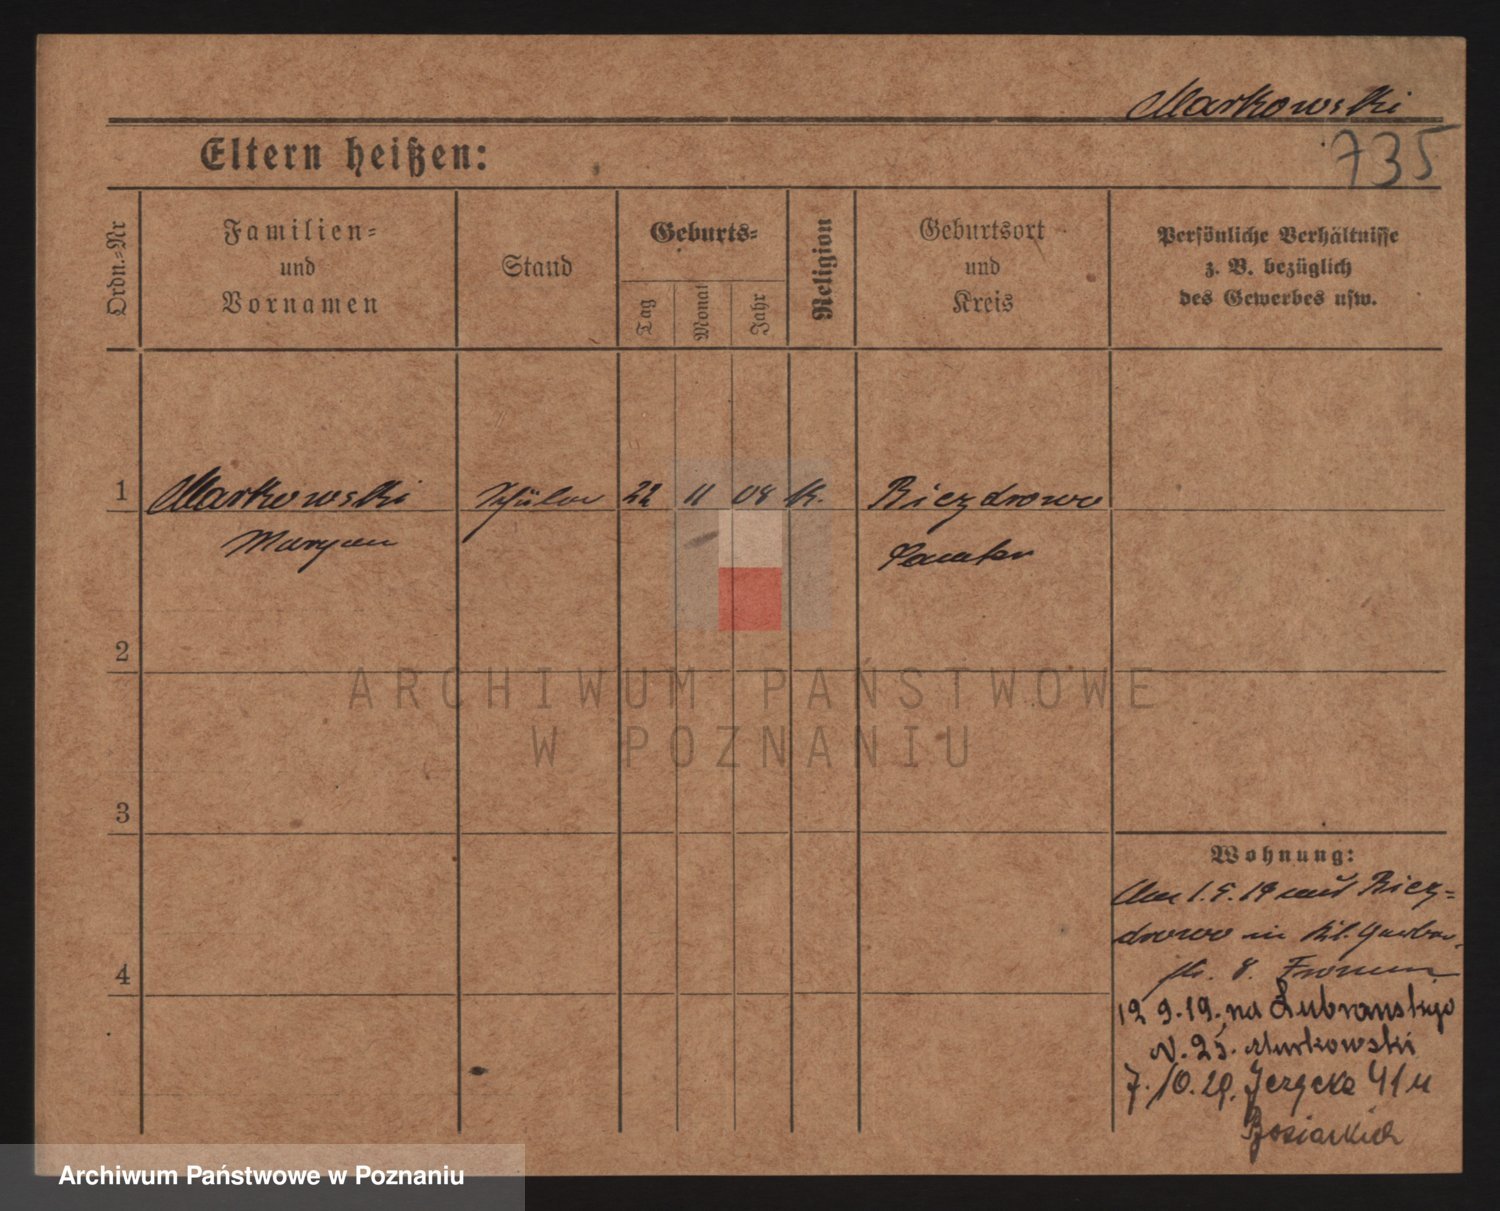 Markowski
Eltern heißen:
735
Ordn.-Nr
Familien-
und
Vornamen
Stand
Geburts-
Tag
Monat
Jahr
Religion
Geburtsort
und
Kreis
Persönliche Verhältnisse
z. B. bezüglich
des Gewerbes usw.
1 Markowski Schüler 22 11 08 K. Biezdrowo
Maryan Samter
2
ARCHIWUM PAŃSTWOWE
W POZNANIU
3
Wohnung:
Am 1.9.19 aus Biez-
drowo in Kl. Gerber
str. 8.
4
12 9.19. na Lubranskiego
N. 25. Markowski
7./10.29. Jezycka 41
Archiwum Państwowe w Poznaniu